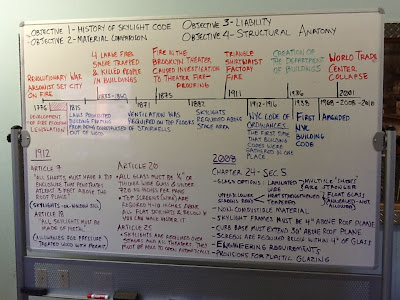 OBJECTIVE 1- HISTORY OF SKYLIGHT CODE
OBJECTIVE 2- MATERIAL COMPARISON
OBJECTIVE 3- LIABILITY
OBJECTIVE 4- STRUCTURAL ANATOMY
REVOLUTIONARY WAR
ARSONIST SET CITY
ON FIRE
4 LARGE FIRES
TRAPPED
& KILLED PEOPLE
IN BUILDINGS
FIRE IN THE
BROOKLYN THEATER
CAUSED INVESTIGATION
TO THEATER FIRE-
PROOFING
TRIANGLE
SHIRTWAIST
FACTORY
FIRE
CREATION OF THE
DEPARTMENT
OF BUILDINGS
WORLD TRADE
CENTER
COLLAPSE
1776
1815
1835-1860
1871
1875
1882
1911
1912-1916
1936
1938
2001
1968-2008-2010
DEVELOPMENT
OF FIRE
LEGISLATION
LAWS PROHIBITED
BUILDING
FROM BEING CONSTRUCTED OF
VENTILATION WAS
REQUIRED ON TOP FLOORS
OF STAIRWELLS
SKYLIGHTS
REQUIRED ABOVE
STAGE AREA
NYC CODE OF
ORDINANCES
THE FIRST TIME
THAT BUILDING
CODES WERE
GATHERED IN ONE
PLACE
FIRST
NYC
BUILDING
CODE
AMENDED
1912
ARTICLE 7
"ALL SHAFTS MUST HAVE A TOP
ENCLOSING THAT
AT LEAST 3 FEET ABOVE THE
ROOF PLANE"
(SKYLIGHTS OR WINDOW)
ARTICLE 18
"ALL SKYLIGHTS MUST BE
MADE OF METAL"
ALLOWANCES FOR PRESSURE
TREATED WOOD WITH PERMIT
ARTICLE 20
ALL GLASS MUST BE ¼" OR
THICKER AND GLASS UNDER
720 SQ INCHES PER PANE
TOP SCREENS (WIRE) ARE
REQUIRED 4-10 INCHES ABOVE
ALL FLAT SKYLIGHTS, & BELOW IF
USED UNDER IT
ARTICLE 25
SKYLIGHTS ARE REQUIRED OVER
STAGES AND ALL THEATERS. THEY
MUST BE ABLE TO OPEN AUTOMATICALLY
2008
CHAPTER 24- SEC. 5
- GLASS OPTIONS:
LAMINATED
HEAT STRENGTHENED
TEMPERED
MULTIPLE SHEETS
STRONGER
FLAT GLASS
(ANNEALED - NOT
ALLOWED)
- NON-COMBUSTIBLE MATERIAL
- SKYLIGHT FRAMES MUST BE 4" ABOVE ROOF PLANE
- CURB BASE MUST EXTEND 30" ABOVE ROOF PLANE
- SCREENS ARE REQUIRED BELOW WITHIN 4" OF GLASS
- ENGINEERING REQUIREMENTS
- PROVISIONS FOR PLASTIC GLAZING